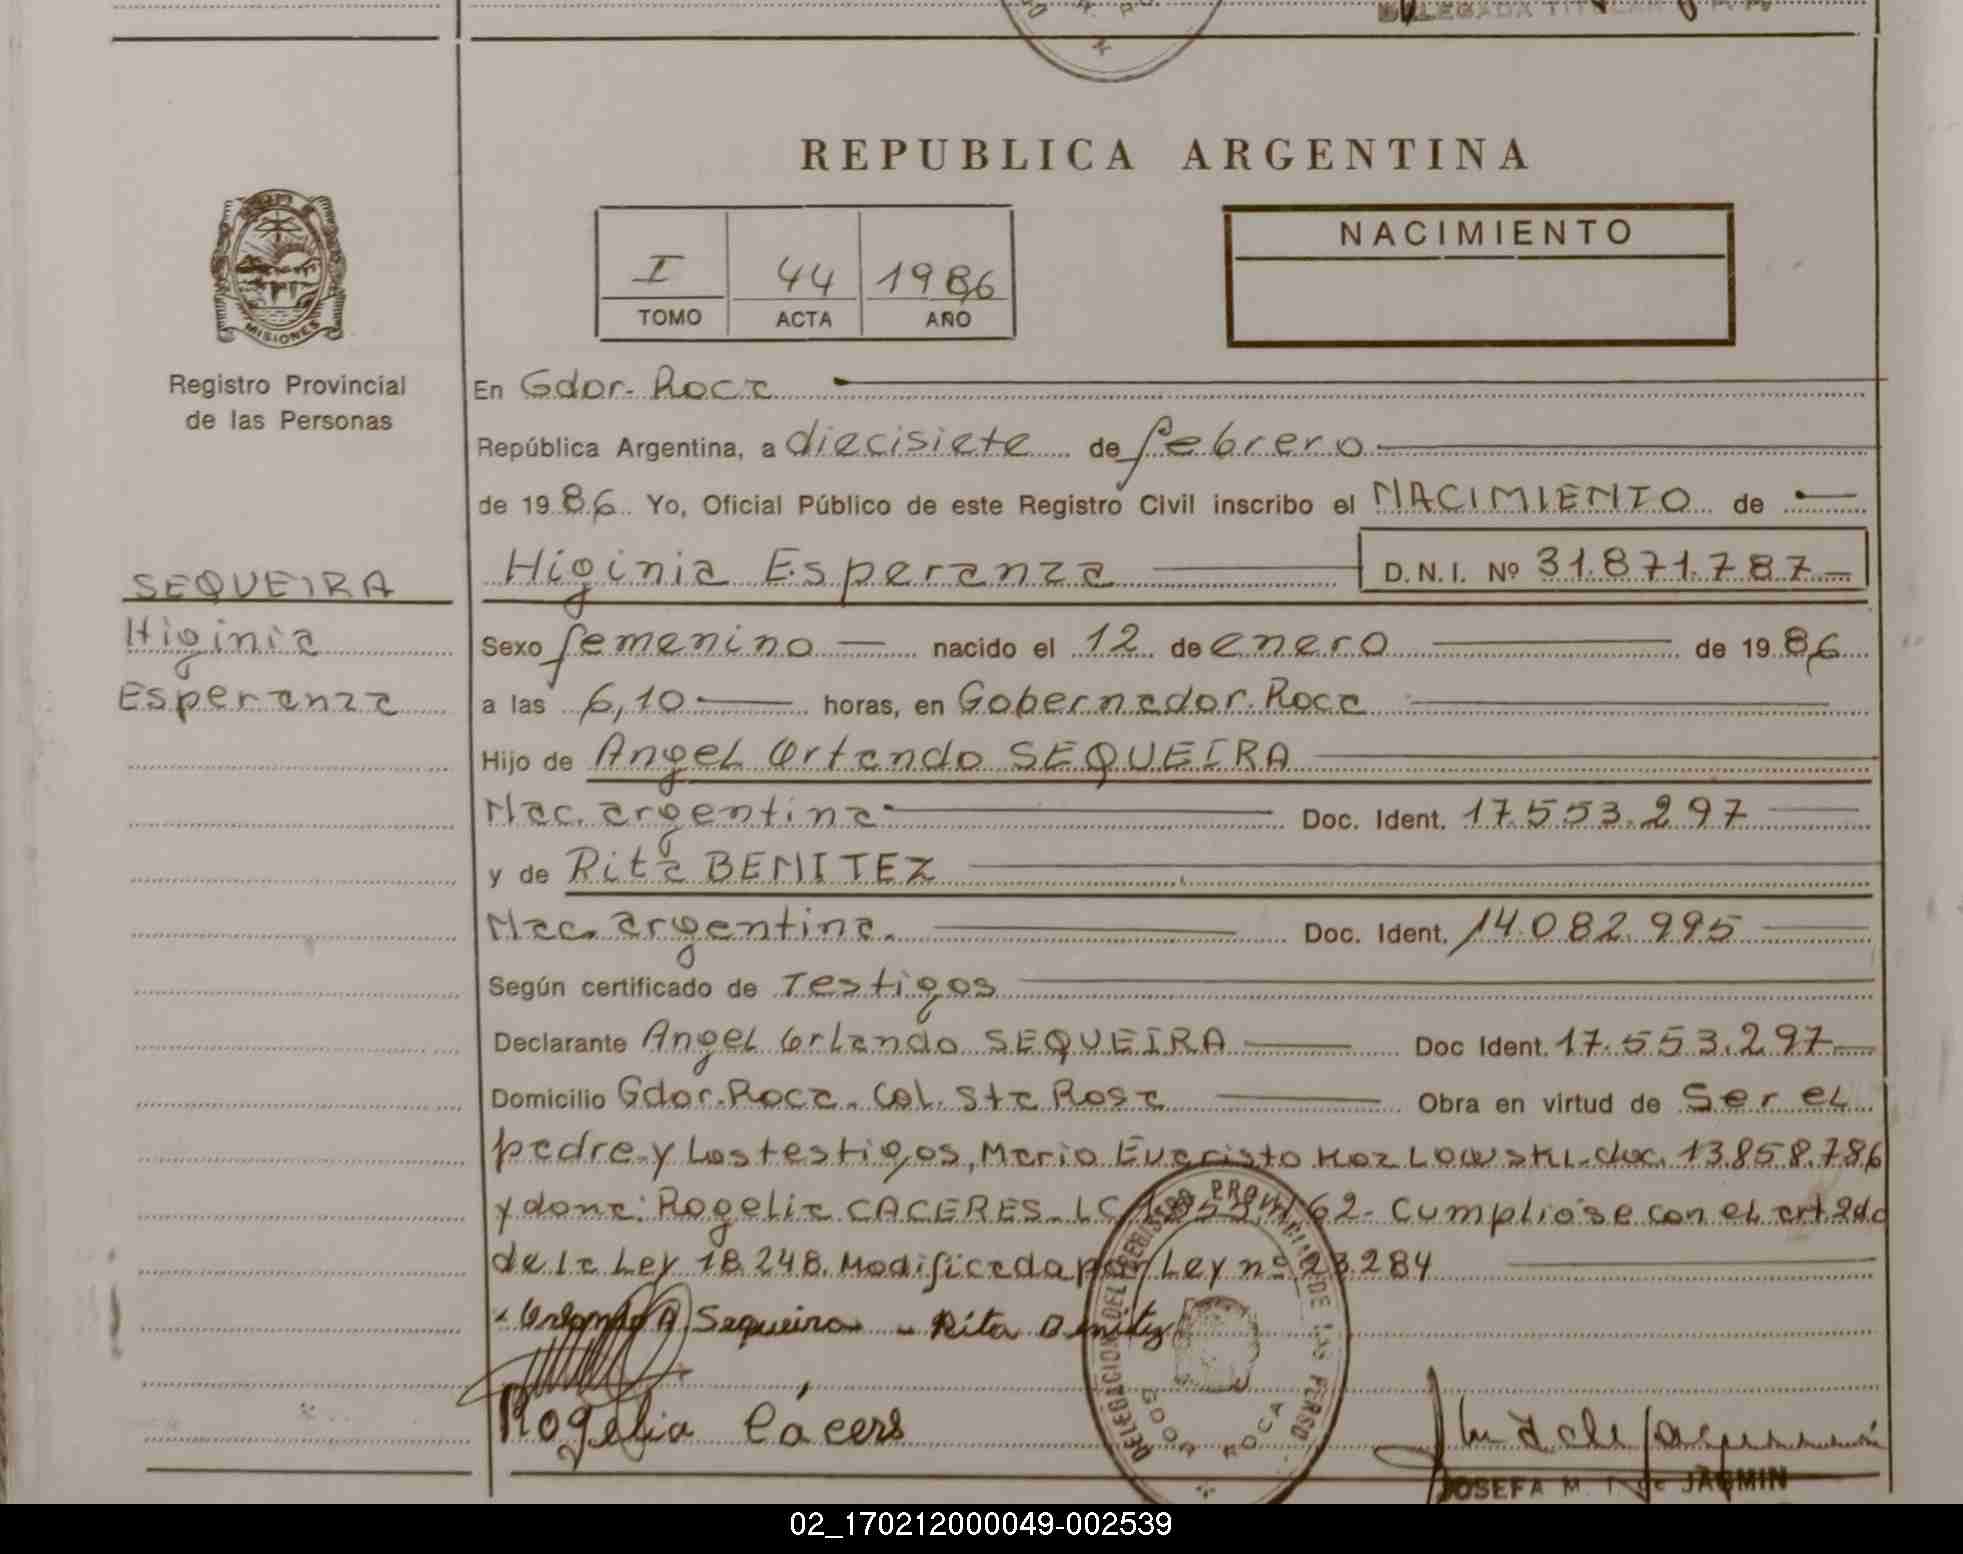 DELEGADA TITULAR
REPUBLICA ARGENTINA
I 44 1986
TOMO ACTA AÑO
NACIMIENTO
MISIONES
Registro Provincial
de las Personas
En Gdor. Roca
República Argentina, a diecisiete de febrero
de 1986 Yo, Oficial Público de este Registro Civil inscribo el NACIMIENTO de
SEQUEIRA
Higinia
Esperanza
Higinia Esperanza D.N.I. Nº 31.871.787
Sexo femenino nacido el 12 de enero de 1986
a las 6,10 horas, en Gobernador Roca
Hijo de Angel Orlando SEQUEIRA
Nac. argentina Doc. Ident. 17.553.297
y de Rita BENITEZ
Nac. argentina. Doc. Ident. 14.082.995
Según certificado de Testigos
Declarante Angel Orlando SEQUEIRA Doc Ident. 17.553.297
Domicilio Gdor. Roca. Col. Sta Rosa Obra en virtud de Ser el
padre y los testigos, Mario Evaristo Kozlowski. doc. 13.858.786
y doña: Rogelia CACERES. LC 62. Cumpliose con el art 2do
de la Ley 18.248. Modificada por Ley nº 23.284
Orlando A Sequeira - Rita Benitez
Rogelia Cácers
DELEGACION DEL REGISTRO PROVINCIAL DE LAS PERSO
GDOR ROCA
JOSEFA M. de JASMIN
02_170212000049-002539